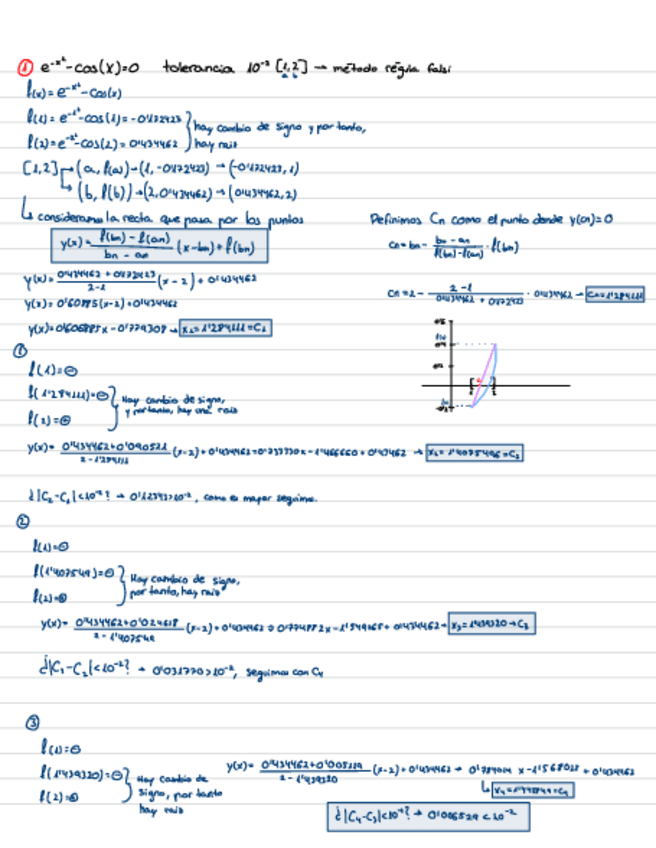 ① e^-x² - cos(x)=0 tolerancia 10^-2 [1,2] → método régula falsi
f(x)= e^-x² - cos(x)
f(1)= e^-1² - cos(1) = -0'172423
f(2)= e^-2² - cos(2) = 0'434462
hay cambio de signo y por tanto,
hay raiz
[1,2] → (a, f(a)) → (1, -0'172423) → (-0'172423, 1)
→ (b, f(b)) → (2, 0'434462) → (0'434462, 2)
↳ consideramos la recta que pasa por los puntos
y(x) = f(bn) - f(an) / bn - an (x-bn) + f(bn)
Definimos Cn como el punto donde y(cn)=0
cn = bn - bn - an / f(bn)-f(an) · f(bn)
y(x)= 0'434462 + 0'172423 / 2-1 (x-2) + 0'434462
cn = 2 - 2-1 / 0'434462 + 0'172423 · 0'434462 → Cn=1'284111
y(x)= 0'606885x - 0'779308 → x₁=1'284111=C₁
①
f(1)=⊖
f(1'284111)=⊖
f(2)=⊕
Hay cambio de signo,
y por tanto, hay una raiz
y(x)= 0'434462+0'090521 / 2-1'284111 (x-2) + 0'434462
x₂=1'4075496=C₂
¿|C₂-C₁|<10^-2? → 0'12343>10^-2, como es mayor seguimos.
②
f(1)=⊖
f(1'407549)=⊖
f(2)=⊕
Hay cambio de signo,
por tanto, hay raiz
y(x)= 0'434462+0'024618 / 2-1'407549 (x-2) + 0'434462 → 0'774882x - 1'549765 + 0'434462 → x₃=1'439320→C₃
0'031770>10^-2, seguimos con C₄
③
f(1)=⊖
f(1'439320)=⊖
f(2)=⊕
Hay cambio de
signo, por tanto
hay raiz
y(x)= 0'434462+0'005119 / 2-1'439320 (x-2) + 0'434462 → 0'784014 x - 1'568028 + 0'434462
¿|C₄-C₃|<10^-2? → 0'006529<10^-2